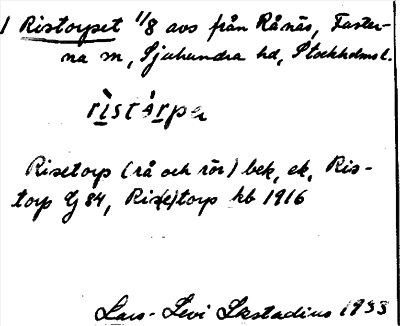 1 Ristorpet 1/8 avs från Rånäs, Faster-
na sn, Sjuhundra hd, Stockholms l.
rìstårpe
Risetorp (rå och rör) bek, ek, Ris-
torp GJ 84, Ris(e)torp hb 1916
Lars-Levi Læstadius 1933